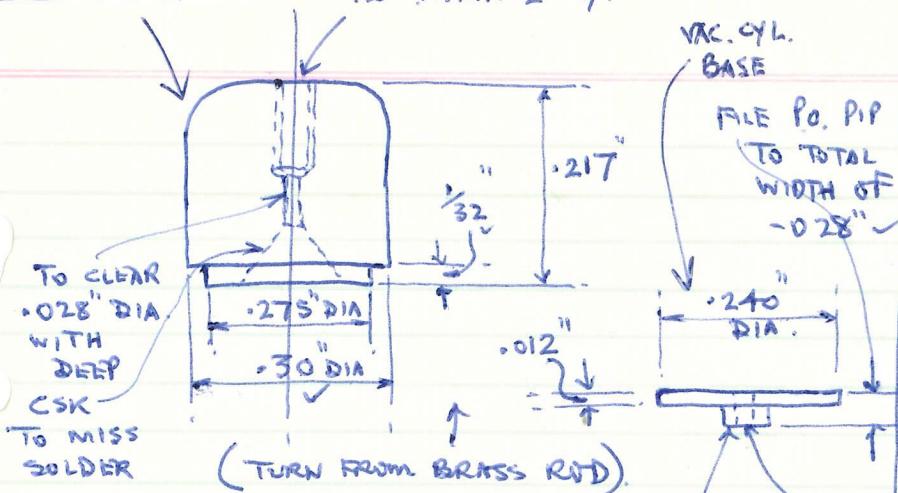 VAC. CYL.
BASE
FILE PO. PIP
TO TOTAL
WIDTH OF
.028" ✓
.217"
1/32"
TO CLEAR
.028" DIA
WITH
DEEP
CSK
TO MISS
SOLDER
.275" DIA
.30" DIA
✓
.012"
.240"
DIA.
(TURN FROM BRASS ROD)